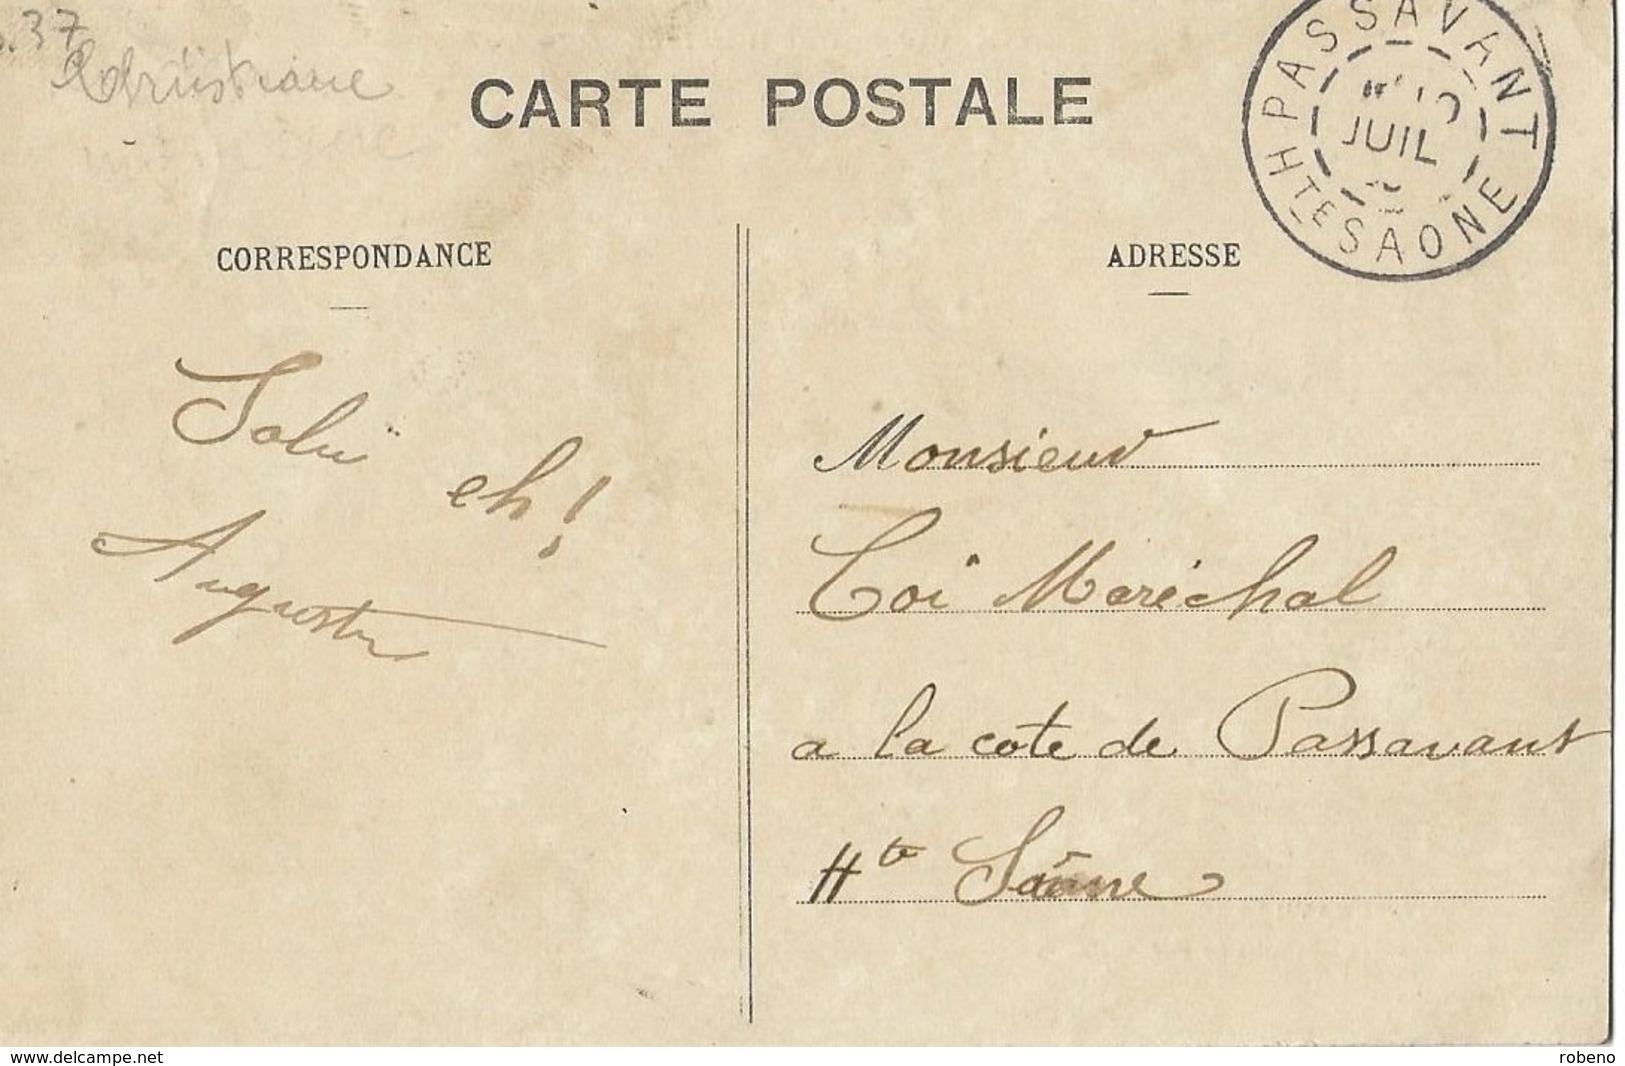 37
CARTE POSTALE
PASSAVANT
JUIL
HTE SAONE
CORRESPONDANCE
ADRESSE
Salü
eh!
Auguste
Monsieur
Coi Maréchal
a la cote de Passavant
Hte Saône
www.delcampe.net
robeno